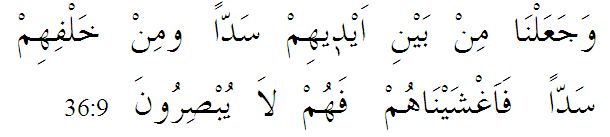 وَجَعَلْنَا مِنْ بَيْنِ اَيْدٖيهِمْ سَدًّا ومِنْ خَلْفِهِمْ
سَدًّا فَاَغْشَيْنَاهُمْ فَهُمْ لاَ يُبْصِرُونَ 36:9